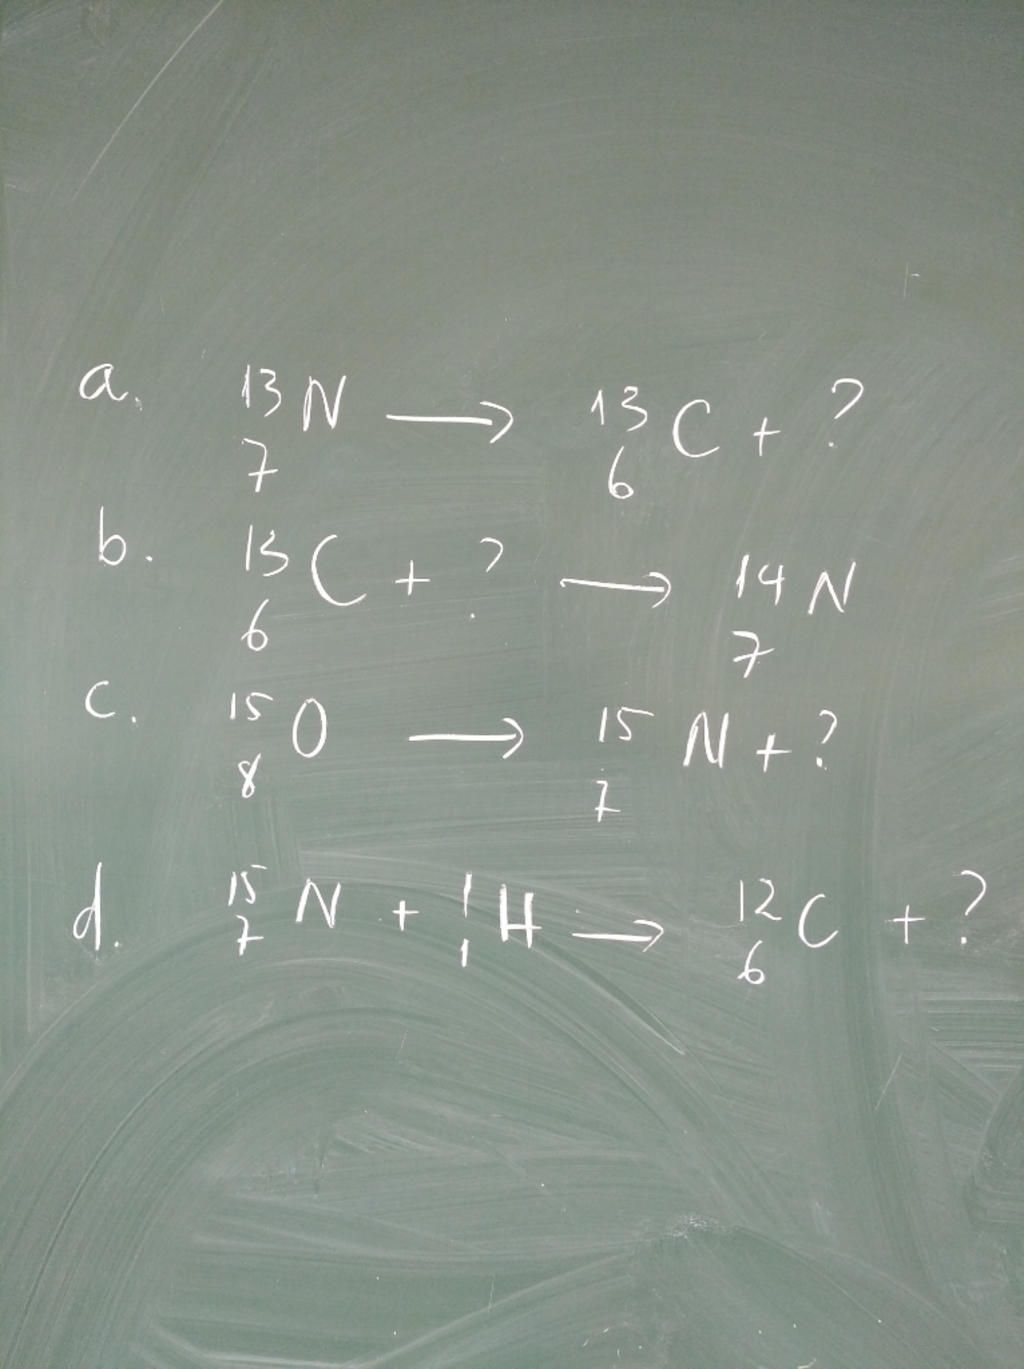 a. ¹³₇N ⟶ ¹³₆C + ?
b. ¹³₆C + ? ⟶ ¹⁴₇N
c. ¹⁵₈O ⟶ ¹⁵₇N + ?
d. ¹⁵₇N + ¹₁H ⟶ ¹²₆C + ?